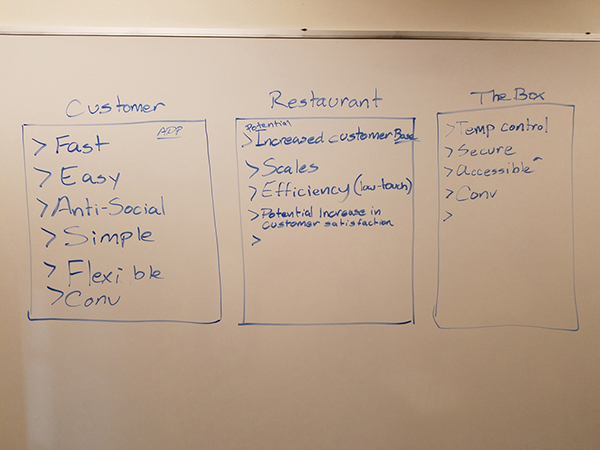 Customer
ADP
> Fast
> Easy
> Anti-Social
> Simple
> Flexible
> Conv
Restaurant
Potential
> Increased customer Base
> Scales
> Efficiency (low-touch)
> Potential Increase in
customer satisfaction
>
The Box
> Temp control
> Secure
> Accessible
> Conv
>